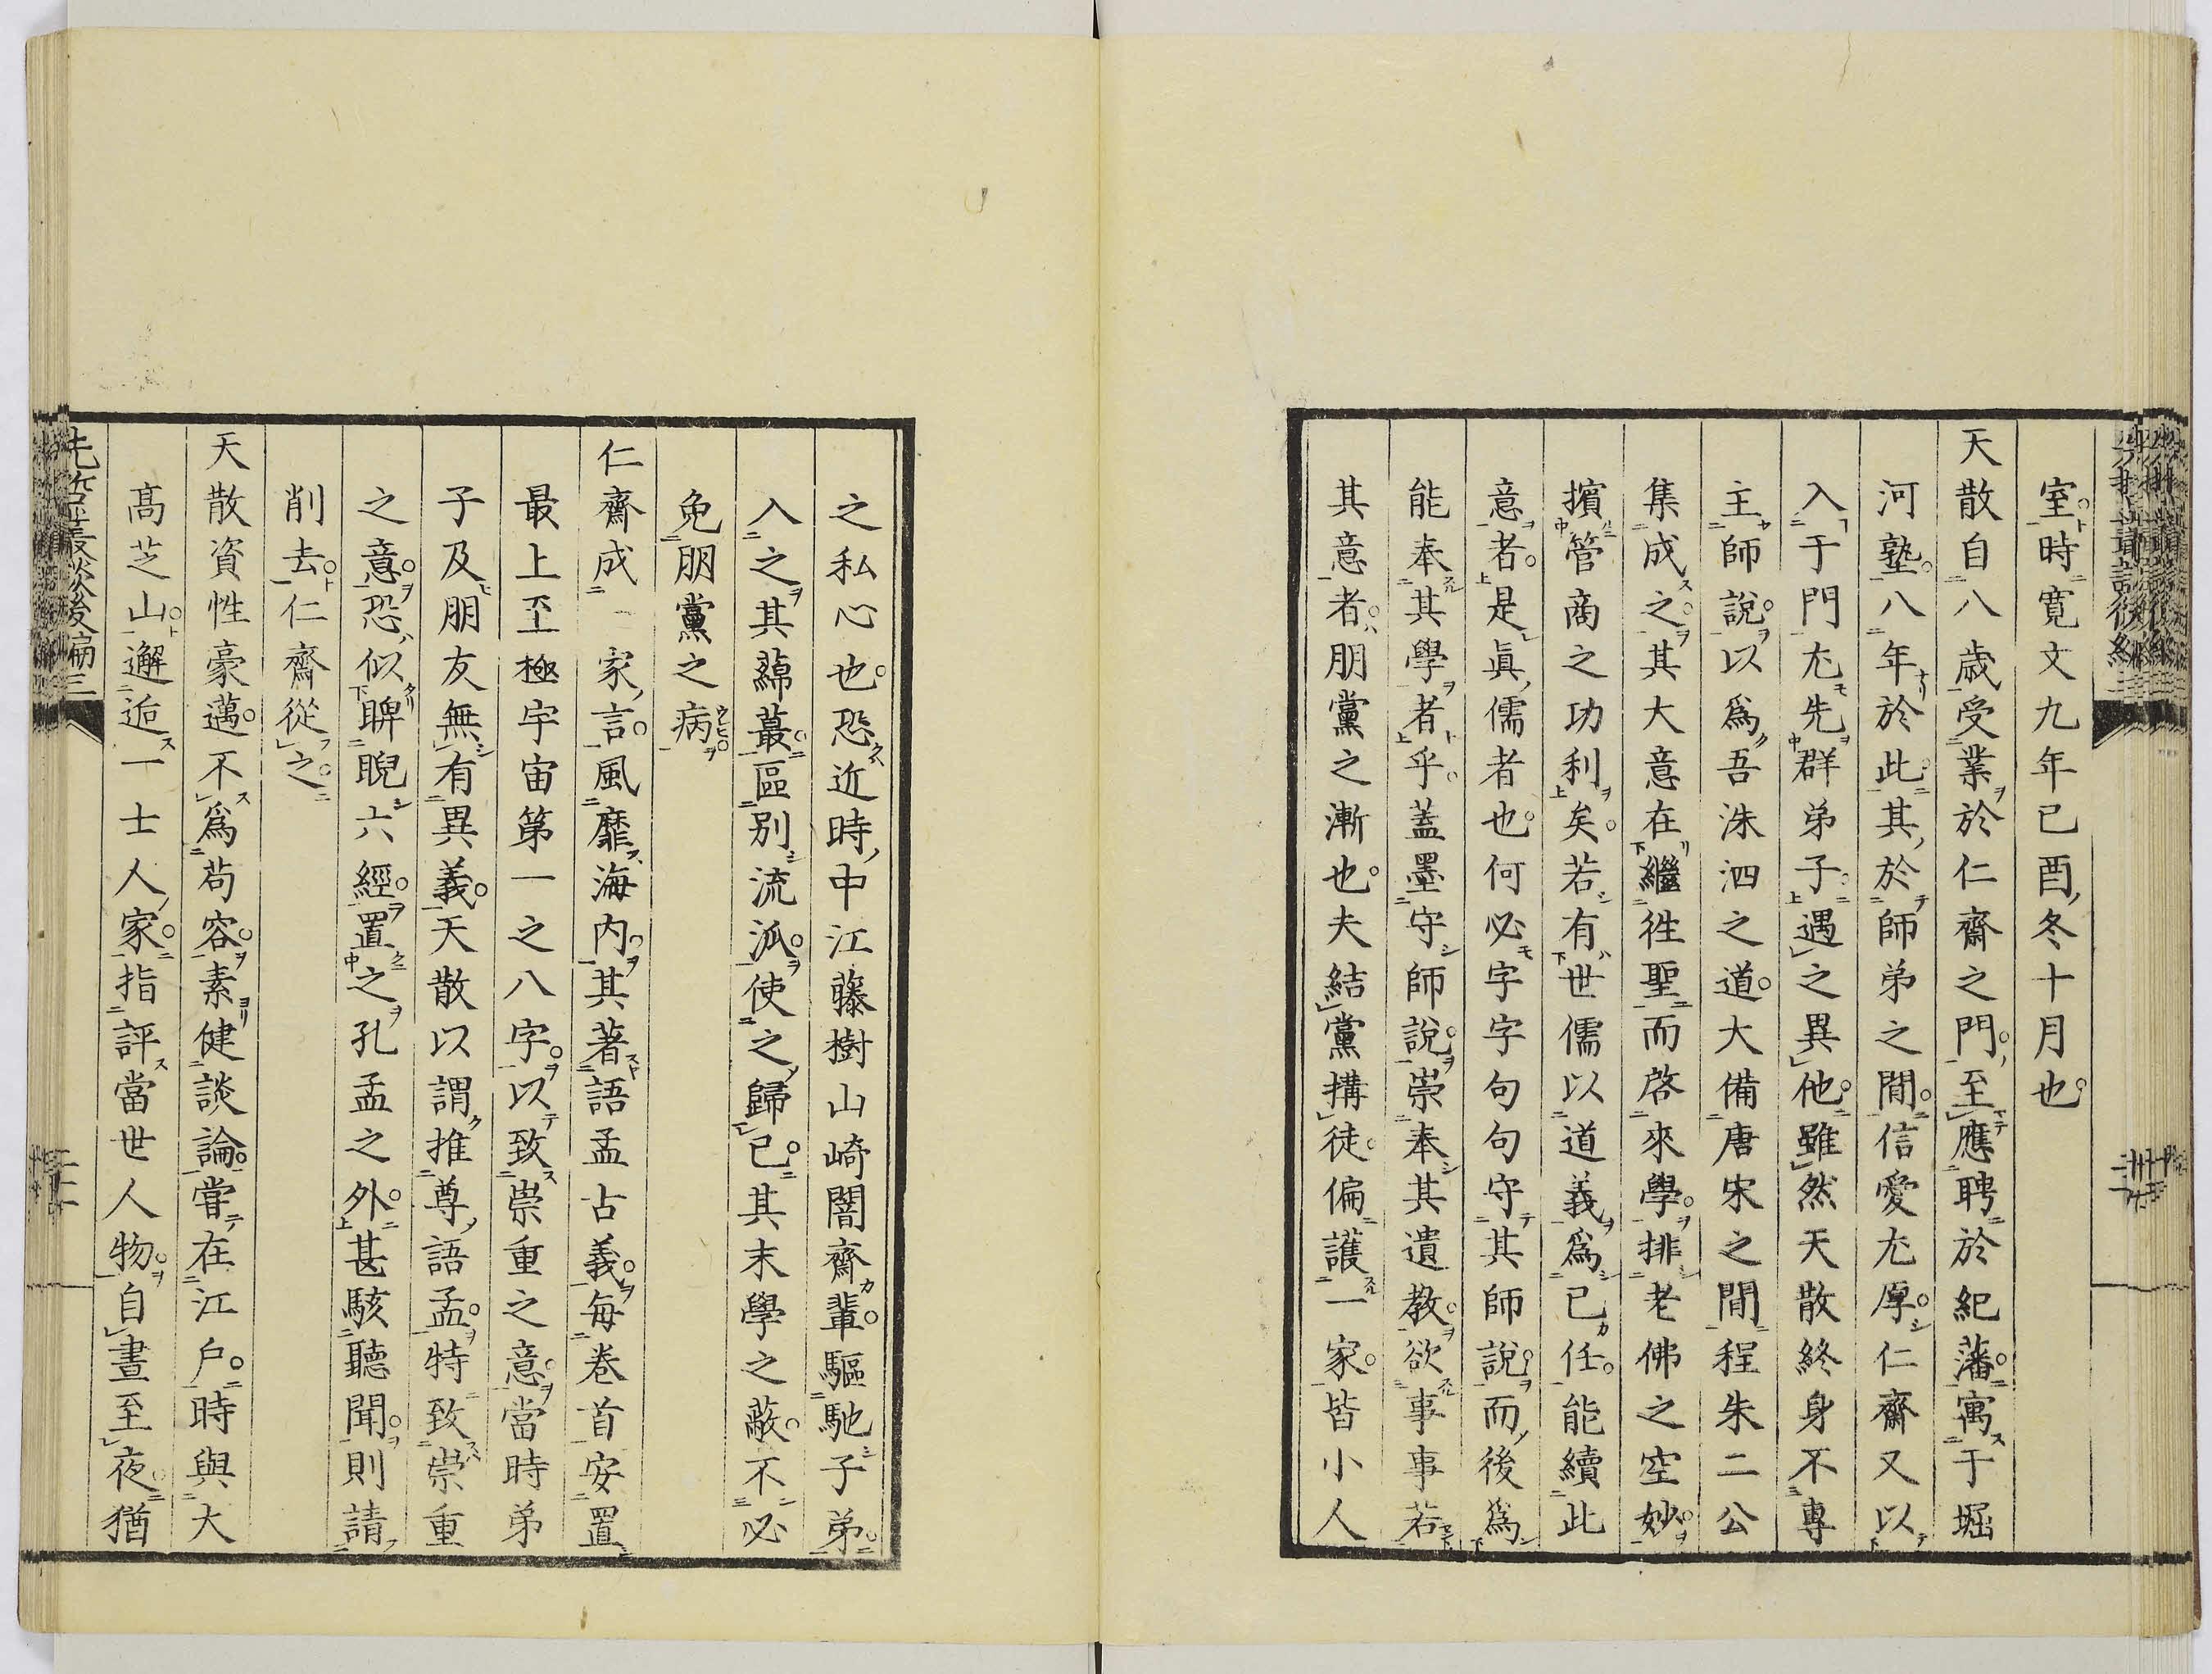 室時寛文九年已酉冬十月也
天散自八歳受業於仁齋之門至應聘於紀藩寓于堀
河塾八年於此其於師弟之間信愛尤厚仁齋又以
入于門尤先群弟子遇之異他雖然天散終身不專
主師說以爲吾洙泗之道大備唐宋之間程朱二公
集成之其大意在繼徃聖而啓來學排老佛之空妙
擯管商之功利矣若有世儒以道義爲已任能續此
意者是眞儒者也何必字字句句守其師說而後爲
能奉其學者乎蓋墨守師說崇奉其遺教欲事事若
其意者朋黨之漸也夫結黨搆徒偏護一家皆小人
之私心也恐近時中江藤樹山崎闇齋輩驅馳子弟
入之其蘂叢區別流派使之歸已其末學之蔽不必
免朋黨之病
仁齋成一家言風靡海内其著語孟古義每卷首安置
最上至極宇宙第一之八字以致崇重之意當時弟
子及朋友無有異義天散以謂推尊語孟特致崇重
之意恐似睥睨六經置之孔孟之外甚駭聽聞則請
削去仁齋從之
天散資性豪邁不爲苟容素健談論甞在江戶時與大
高芝山邂逅一士人家指評當世人物自晝至夜猶
先哲叢談後編三